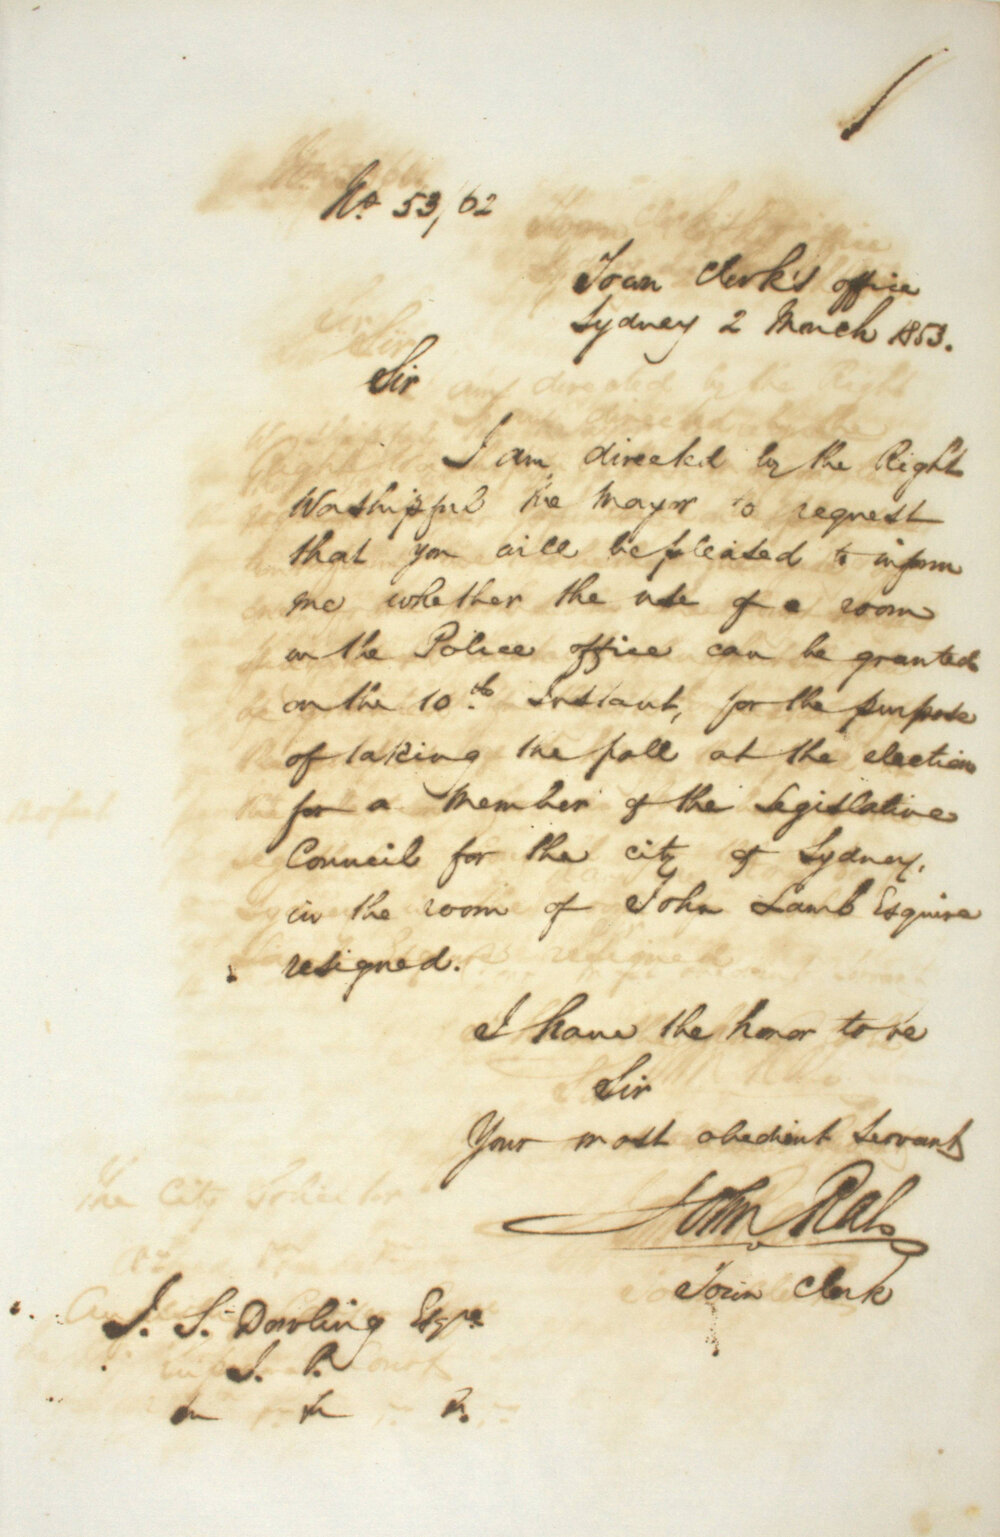 No. 53/62
Town Clerk's office
Sydney 2 March 1853.
Sir
I am directed by the Right
Worshipful the Mayor to request
that you will be pleased to inform
me whether the use of a room
in the Police office can be granted
on the 10th Instant, for the purpose
of taking the poll at the election
for a Member of the Legislative
Council for the city of Sydney,
in the room of John Lamb Esquire
resigned.
I have the honor to be
Sir
Your most obedient Servant
John Rae
Town Clerk
J. S. Dowling Esqre
J. P.